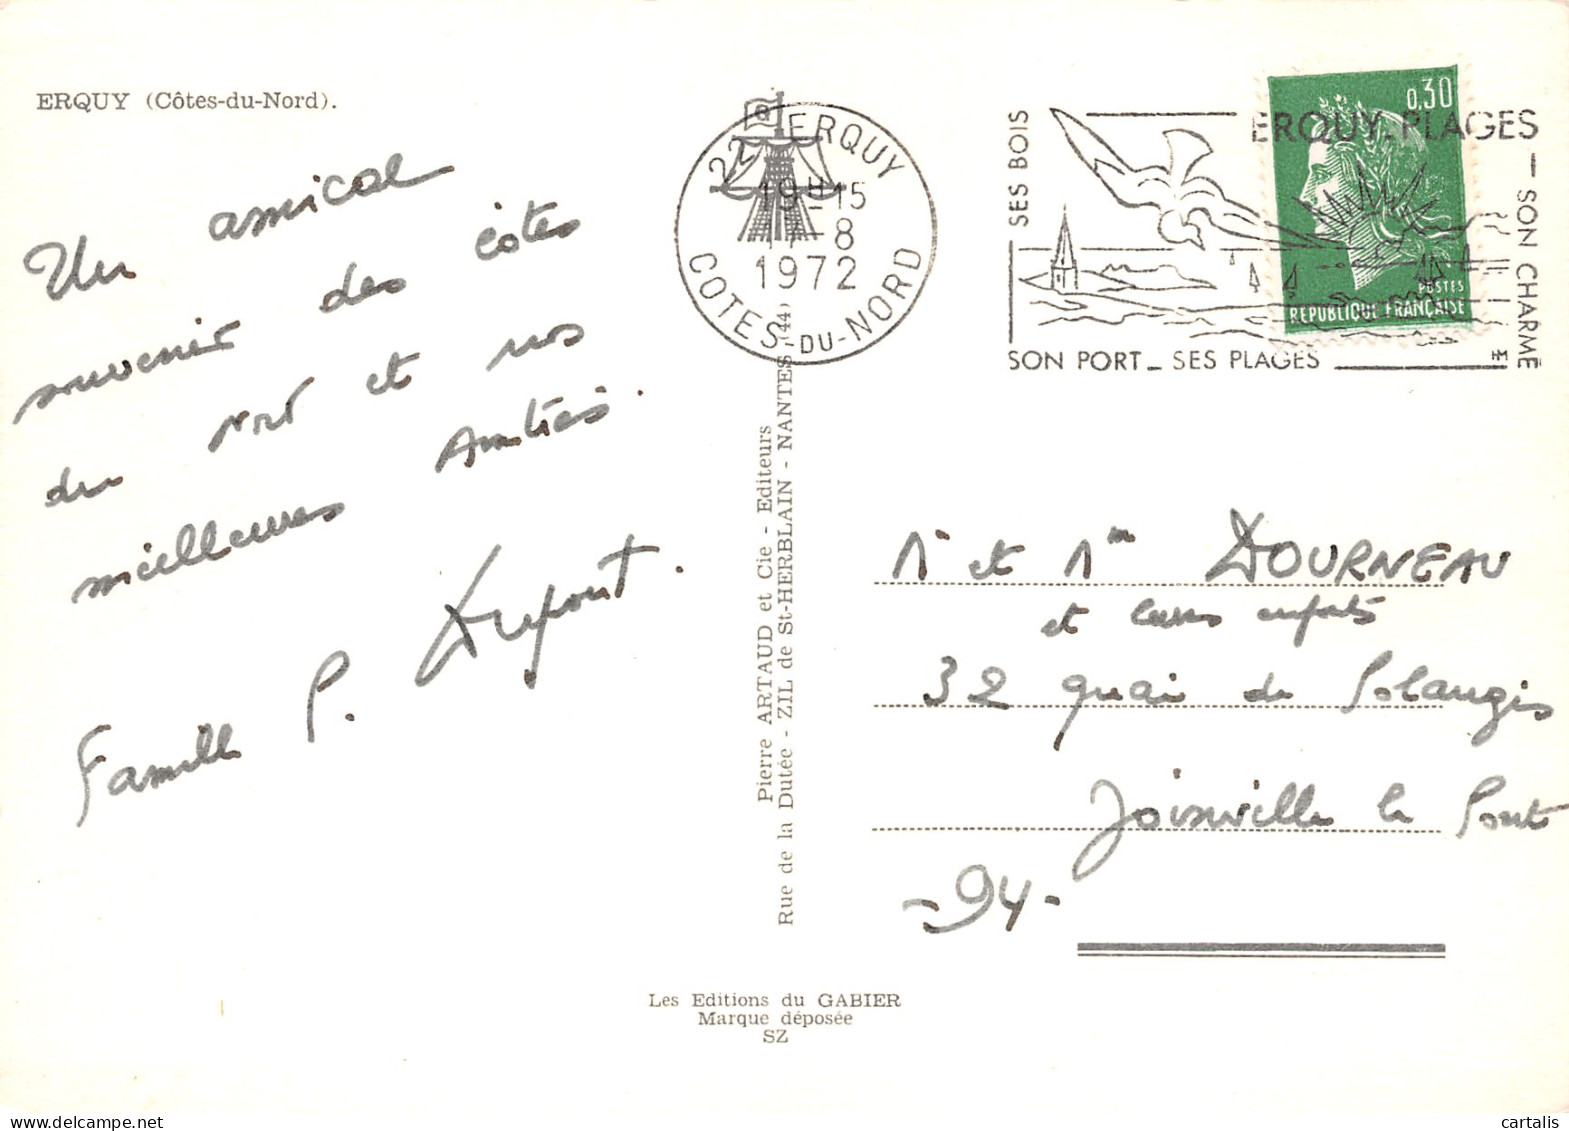 ERQUY (Côtes-du-Nord).
Un amical
souvenir des côtes
du nord et nos
meilleures Amitiés.
Famille P. Dupont.
22 ERQUY
19H15
8
1972
COTES-DU-NORD
SES BOIS
ERQUY-PLAGES
SON CHARME
SON PORT _ SES PLAGES
0,30
POSTES
REPUBLIQUE FRANÇAISE
Pierre ARTAUD et Cie - Editeurs
Rue de la Dutée - ZIL de St-HERBLAIN - NANTES (44)
Mr et Mme DOURNEAU
et leurs enfants
32 quai de Polangis
Joinville le Pont
-94-
Les Editions du GABIER
Marque déposée
SZ
cartalis